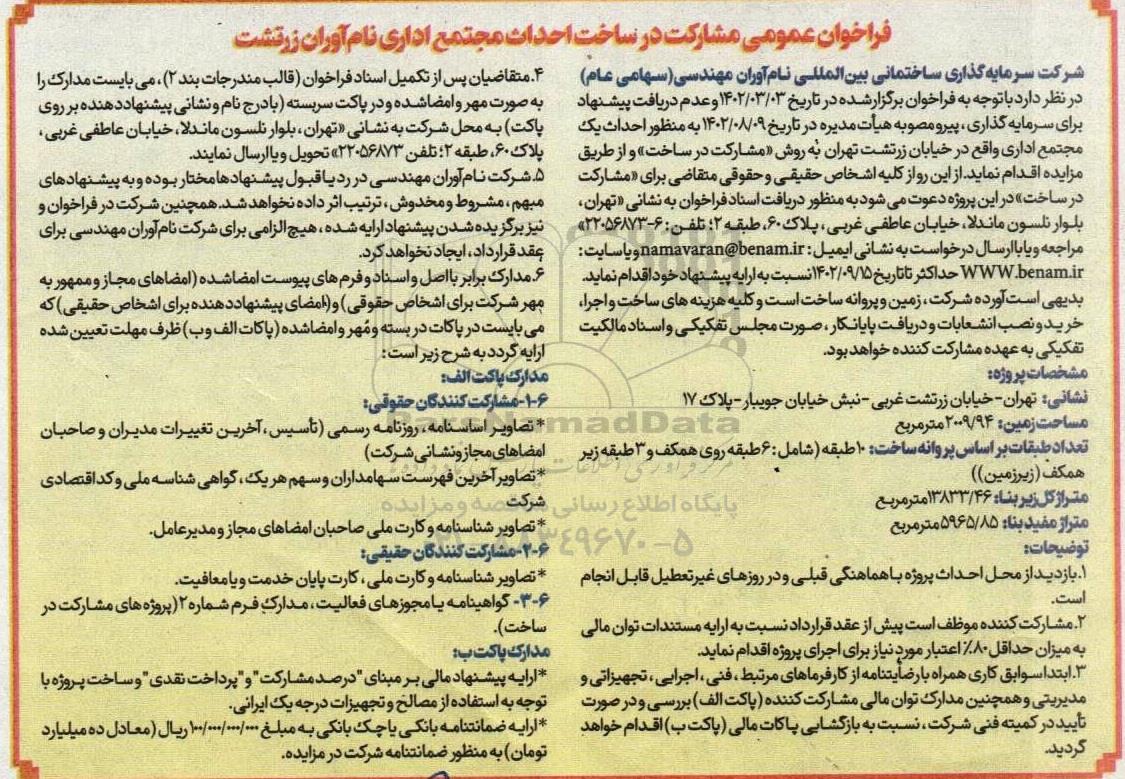 فراخوان عمومی مشارکت در ساخت احداث مجتمع اداری نام‌آوران زرتشت
شرکت سرمایه‌گذاری ساختمانی بین‌المللی نام‌آوران مهندسی (سهامی عام)
در نظر دارد با توجه به فراخوان برگزار شده در تاریخ ۱۴۰۲/۰۳/۰۳ و عدم دریافت پیشنهاد
برای سرمایه گذاری، پیرو مصوبه هیأت مدیره در تاریخ ۱۴۰۲/۰۸/۰۹ به منظور احداث یک
مجتمع اداری واقع در خیابان زرتشت تهران به روش «مشارکت در ساخت» و از طریق
مزایده اقدام نماید. از این رو از کلیه اشخاص حقیقی و حقوقی متقاضی برای «مشارکت
در ساخت» در این پروژه دعوت می شود به منظور دریافت اسناد فراخوان به نشانی «تهران،
بلوار نلسون ماندلا، خیابان عاطفی غربی، پلاک ۶۰، طبقه ۲؛ تلفن: ۶-۲۲۰۵۶۸۷۳»
مراجعه و یا با ارسال درخواست به نشانی ایمیل: namavaran@benam.ir و یا سایت:
WWW.benam.ir حداکثر تا تاریخ ۱۴۰۲/۰۹/۱۵ نسبت به ارایه پیشنهاد خود اقدام نماید.
بدیهی است آورده شرکت، زمین و پروانه ساخت است و کلیه هزینه های ساخت و اجرا،
خرید و نصب انشعابات و دریافت پایانکار، صورت مجلس تفکیکی و اسناد مالکیت
تفکیکی به عهده مشارکت کننده خواهد بود.
مشخصات پروژه:
نشانی: تهران-خیابان زرتشت غربی-نبش خیابان جویبار-پلاک ۱۷
مساحت زمین: ۲۰۰۹/۹۴ مترمربع
تعداد طبقات بر اساس پروانه ساخت: ۱۰ طبقه (شامل: ۶ طبقه روی همکف و ۳ طبقه زیر
همکف (زیرزمین))
متراژ کل زیربنا: ۱۳۸۳۳/۴۶ مترمربع
متراژ مفید بنا: ۵۹۶۵/۸۵ مترمربع
توضیحات:
۱. بازدید از محل احداث پروژه با هماهنگی قبلی و در روزهای غیرتعطیل قابل انجام
است.
۲. مشارکت کننده موظف است پیش از عقد قرارداد نسبت به ارایه مستندات توان مالی
به میزان حداقل ۸۰٪ اعتبار مورد نیاز برای اجرای پروژه اقدام نماید.
۳. ابتدا سوابق کاری همراه با رضایتنامه از کارفرماهای مرتبط، فنی، اجرایی، تجهیزاتی و
مدیریتی و همچنین مدارک توان مالی مشارکت کننده (پاکت الف) بررسی و در صورت
تأیید در کمیته فنی شرکت، نسبت به بازگشایی پاکات مالی (پاکت ب) اقدام خواهد
گردید.
۴. متقاضیان پس از تکمیل اسناد فراخوان (قالب مندرجات بند ۲)، می بایست مدارک را
به صورت مهر و امضا شده و در پاکت سربسته (با درج نام و نشانی پیشنهاددهنده بر روی
پاکت) به محل شرکت به نشانی «تهران، بلوار نلسون ماندلا، خیابان عاطفی غربی،
پلاک ۶۰، طبقه ۲؛ تلفن ۲۲۰۵۶۸۷۳» تحویل و یا ارسال نمایند.
۵. شرکت نام‌آوران مهندسی در رد یا قبول پیشنهادها مختار بوده و به پیشنهادهای
مبهم، مشروط و مخدوش، ترتیب اثر داده نخواهد شد. همچنین شرکت در فراخوان و
نیز برگزیده شدن پیشنهاد ارایه شده، هیچ الزامی برای شرکت نام‌آوران مهندسی برای
عقد قرارداد، ایجاد نخواهد کرد.
۶. مدارک برابر با اصل و اسناد و فرم های پیوست امضا شده (امضاهای مجاز و ممهور به
مهر شرکت برای اشخاص حقوقی) و (امضای پیشنهاددهنده برای اشخاص حقیقی) که
می بایست در پاکات در بسته و مُهر و امضا شده (پاکات الف و ب) ظرف مهلت تعیین شده
ارایه گردد به شرح زیر است:
مدارک پاکت الف:
۶-۱-مشارکت کنندگان حقوقی:
* تصاویر اساسنامه، روزنامه رسمی (تأسیس، آخرین تغییرات مدیران و صاحبان
امضاهای مجاز و نشانی شرکت)
* تصاویر آخرین فهرست سهامداران و سهم هر یک، گواهی شناسه ملی و کد اقتصادی
شرکت
* تصاویر شناسنامه و کارت ملی صاحبان امضاهای مجاز و مدیرعامل.
۶-۲-مشارکت کنندگان حقیقی:
* تصاویر شناسنامه و کارت ملی، کارت پایان خدمت و یا معافیت.
۶-۳- گواهینامه یا مجوزهای فعالیت، مدارک فرم شماره ۲ (پروژه های مشارکت در
ساخت).
مدارک پاکت ب:
* ارایه پیشنهاد مالی بر مبنای "درصد مشارکت" و "پرداخت نقدی" و ساخت پروژه با
توجه به استفاده از مصالح و تجهیزات درجه یک ایرانی.
* ارایه ضمانتنامه بانکی یا چک بانکی به مبلغ ۱۰۰/۰۰۰/۰۰۰/۰۰۰ ریال (معادل ده میلیارد
تومان) به منظور ضمانتنامه شرکت در مزایده.
ParsNamadData
پایگاه اطلاع رسانی مناقصه و مزایده
۰۲۱-۸۸۳۴۹۶۷۰-۵